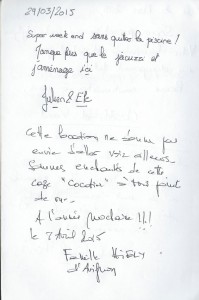 29/03/2015
Super week end sans quitter la piscine !
Manque plus que le jacuzzi et
j'aménage ici
Julien & Ele
Cette location ne donne pas
envie d'aller voir ailleurs.
Sommes enchantés de cette
case "Cocotier" à tout point
de vue.
A l'année prochaine !!!
le 7 Avril 2015
Famille
d'Avignon